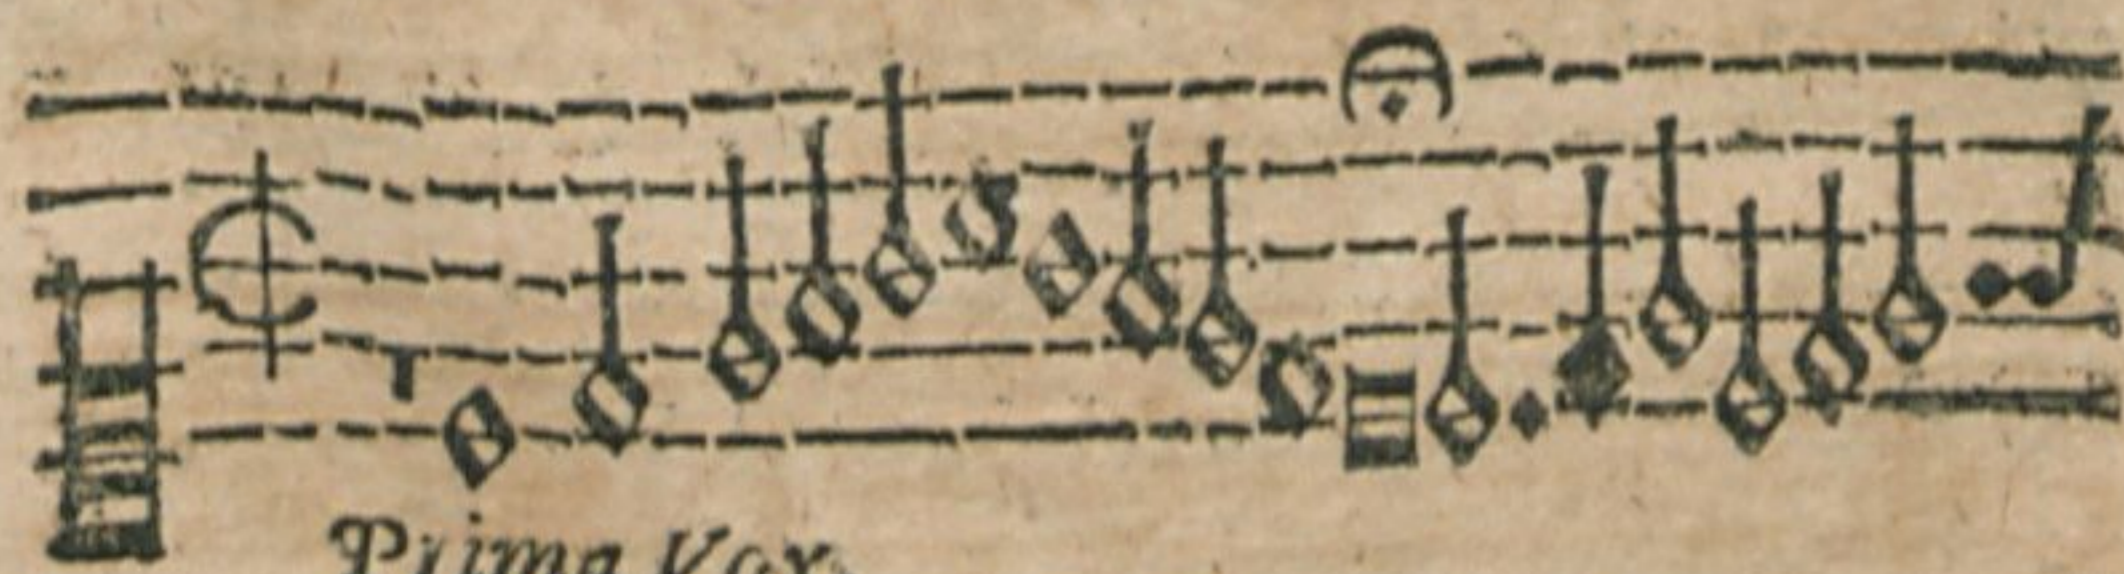 Prima Vox.